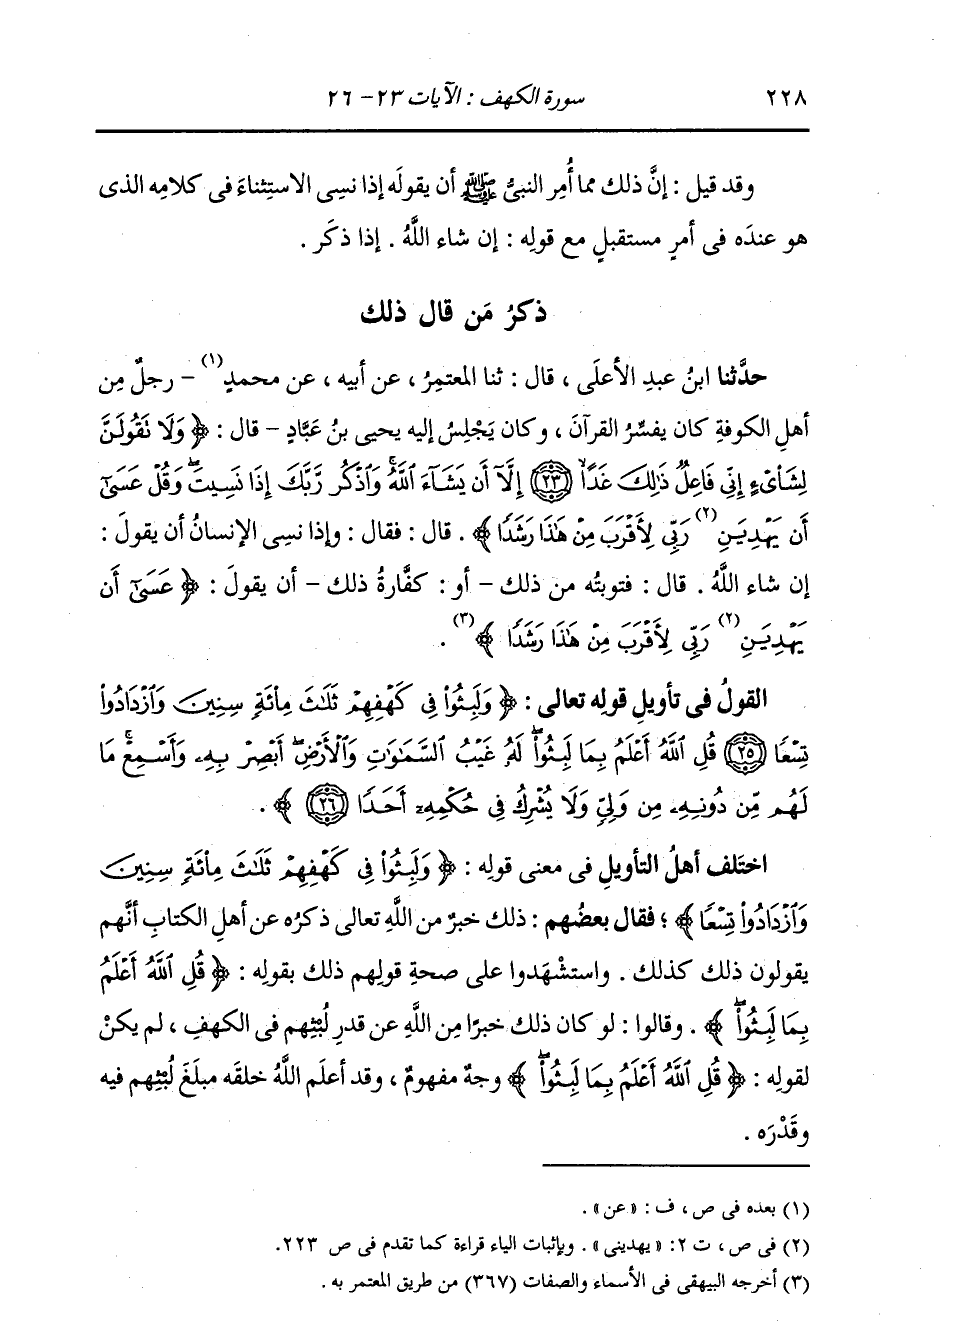 ٢٢٨ سورة الكهف : الآيات ٢٣ - ٢٦
وقد قيل : إنَّ ذلك مما أُمِر النبىُّ ﷺ أن يقولَه إذا نسِى الاستثناءَ فى كلامِه الذى
هو عندَه فى أمرٍ مستقبلٍ مع قولِه : إن شاء اللَّهُ . إذا ذكَر .
ذكرُ مَن قال ذلك
حدَّثنا ابنُ عبدِ الأعلَى ، قال : ثنا المعتمِرُ ، عن أبيه ، عن محمدٍ(١) - رجلٌ مِن
أهلِ الكوفةِ كان يفسِّرُ القرآنَ ، وكان يَجْلِسُ إليه يحيى بنُ عَبَّادٍ - قال : ﴿ وَلَا نَقُولَنَّ
لِشَاْىۡءٍ إِنِّى فَاعِلٌ ذَٰلِكَ غَدًا ﴿٢٣﴾ إِلَّآ أَن يَشَآءَ ٱللَّهُۚ وَٱذۡكُر رَّبَّكَ إِذَا نَسِيتَۖ وَقُلۡ عَسَىٰٓ
أَن يَهۡدِيَنِ(٢) رَبِّى لِأَقۡرَبَ مِنۡ هَٰذَا رَشَدًا ﴾ . قال : فقال : وإذا نسِى الإنسانُ أن يقولَ :
إن شاء اللَّهُ . قال : فتوبتُه من ذلك - أو : كفَّارةُ ذلك - أن يقولَ : ﴿ عَسَىٰٓ أَن
يَهۡدِيَنِ(٢) رَبِّى لِأَقۡرَبَ مِنۡ هَٰذَا رَشَدًا ﴾(٣) .
القولُ فى تأويلِ قولِه تعالى : ﴿ وَلَبِثُواْ فِى كَهۡفِهِمۡ ثَلَٰثَ مِاْئَةٖ سِنِينَ وَٱزۡدَادُواْ
تِسۡعًا ﴿٢٥﴾ قُلِ ٱللَّهُ أَعۡلَمُ بِمَا لَبِثُواْۖ لَهُۥ غَيۡبُ ٱلسَّمَٰوَٰتِ وَٱلۡأَرۡضِۖ أَبۡصِرۡ بِهِۦ وَأَسۡمِعۡۚ مَا
لَهُم مِّن دُونِهِۦ مِن وَلِىّٖ وَلَا يُشۡرِكُ فِى حُكۡمِهِۦٓ أَحَدًا ﴿٢٦﴾ ﴾ .
اختَلف أهلُ التأويلِ فى معنى قولِه : ﴿ وَلَبِثُواْ فِى كَهۡفِهِمۡ ثَلَٰثَ مِاْئَةٖ سِنِينَ
وَٱزۡدَادُواْ تِسۡعًا ﴾ ؛ فقال بعضُهم : ذلك خبرٌ من اللَّهِ تعالى ذكرُه عن أهلِ الكتابِ أنَّهم
يقولون ذلك كذلك . واستشْهَدوا على صحةِ قولِهم ذلك بقولِه : ﴿ قُلِ ٱللَّهُ أَعۡلَمُ
بِمَا لَبِثُواْۖ ﴾ . وقالوا : لو كان ذلك خبرًا مِن اللَّهِ عن قدرِ لُبْثِهم فى الكهفِ ، لم يكنْ
لقولِه : ﴿ قُلِ ٱللَّهُ أَعۡلَمُ بِمَا لَبِثُواْۖ ﴾ وجهٌ مفهومٌ ، وقد أعلَم اللَّهُ خلقَه مبلغَ لُبْثِهم فيه
وقَدْرَه .
(١) بعده فى ص ، ف : « عن » .
(٢) فى ص ، ت ٢: « يهدينى » . وبإثبات الياء قراءة كما تقدم فى ص ٢٢٣.
(٣) أخرجه البيهقى فى الأسماء والصفات (٣٦٧) من طريق المعتمر به .